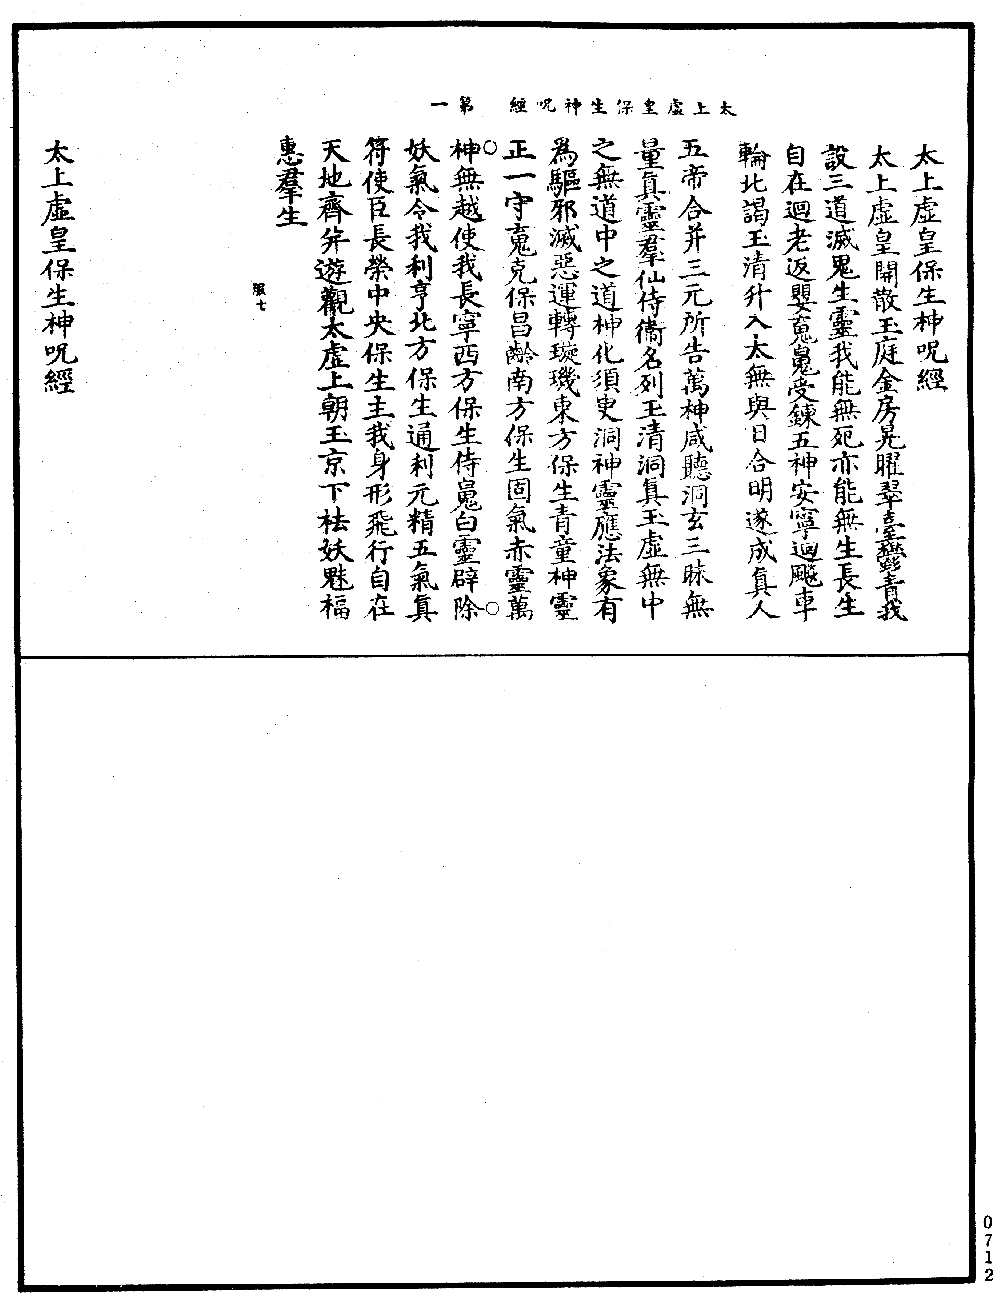 太上虛皇保生神呪經　第一
太上虛皇保生神呪經
太上虛皇開散玉庭金房晃曜翠臺鬱青我
設三道滅鬼生靈我能無死亦能無生長生
自在迴老返嬰䰟䰟受鍊五神安寧迴飈車
輪北謁玉清升入太無與日合明遂成真人
五帝合并三元所告萬神咸聽洞玄三昧無
量真靈羣仙侍衞名列玉清洞真玉虛無中
之無道中之道神化須臾洞神靈應法象有
為驅邪滅惡運轉璇璣東方保生青童神靈
正一守䰟克保昌齡南方保生固氣赤靈萬
神無越使我長寧西方保生侍䰟白靈辟除
妖氣令我利亨北方保生通利元精五氣真
符使臣長榮中央保生主我身形飛行自在
天地齊并遊觀太虛上朝玉京下祛妖魅福
惠羣生
太上虛皇保生神呪經
0712